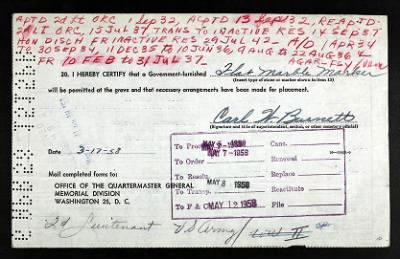 APTD 2d Lt ORC 1 Sep 32, ACPTD 13 Sep 32, REAPTD-
2d LT ORC, 15 Jul 37 TRANS TO INACTIVE RES 14 Sep 37
HON DISCH FR INACTIVE RES 29 Jul 42. A/D 1 APR 34
TO 30 SEP 34, 11 DEC 35 TO 10 JUN 36, 9 AUG to 22 AUG 36 &
FR 10 FEB to 31 Jul 37. AGAR-F
20. I HEREBY CERTIFY that a Government-furnished Flat Marble Marker
(Insert type of stone or marker shown in item 12)
will be permitted at the grave and that necessary arrangements have been made for placement.
Carl W. Burnett
(Signature and title of superintendent, sexton, or other cemetery official)
Date 3-17-58
Mail completed forms to:
OFFICE OF THE QUARTERMASTER GENERAL
MEMORIAL DIVISION
WASHINGTON 25, D. C.
To Proc. MAY 5 1958 Canc.
To Order MAY 7 1958 Renewed
To Resub. Replace
To Transp. MAY 8 1958 Reactivate
To F & C MAY 12 1958 File
2d Lieutenant US Army WW II